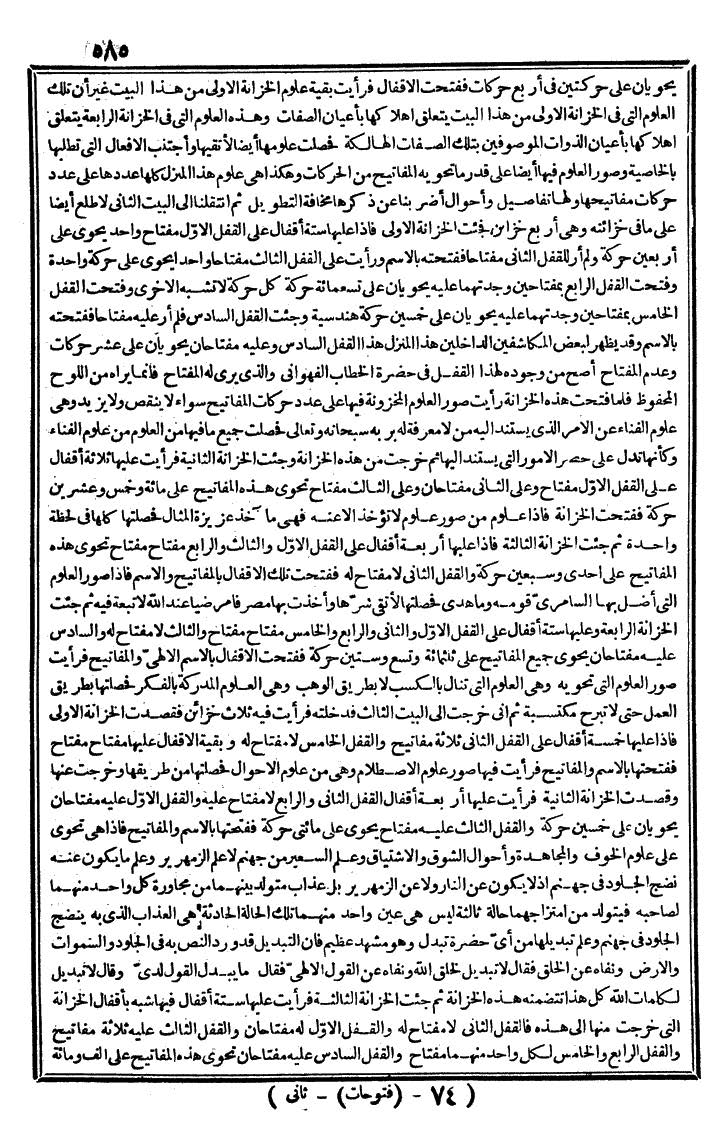 ٥٨٥
يحويان على حركتين فى أربع حركات ففتحت الاقفال فرأيت بقية علوم الخزانة الاولى من هذا البيت غير أن تلك
العلوم التى فى الخزانة الاولى من هذا البيت يتعلق اهلا كها بأعيان الصفات وهذه العلوم التى فى الخزانة الرابعة يتعلق
اهلا كها بأعيان الذوات الموصوفين بتلك الصفات الهالكة فحصلت علومها أيضا لأتقيها وأجتنب الافعال التى تطلبها
بالخاصية وصور العلوم فيها أيضا على قدر ما تحويه المفاتيح من الحركات وهكذا هى علوم هذا المنزل كلها عددها على عدد
حركات مفاتيحها ولها تفاصيل وأحوال أضربنا عن ذكرها مخافة التطويل ثم انتقلنا الى البيت الثانى لاطلع أيضا
على ما فى خزائنه وهى أربع خزاين فجئت الخزانة الاولى فاذا عليها ستة أقفال على القفل الاوّل مفتاح واحد يحوى على
أربعين حركة ولم أر للقفل الثانى مفتاحا ففتحته بالاسم ورأيت على القفل الثالث مفتاحا واحدا يحوى على حركة واحدة
وفتحت القفل الرابع بمفتاحين وجدتهما عليه يحويان على تسعمائة حركة كل حركة لا تشبه الاخرى وفتحت القفل
الخامس بمفتاحين وجدتهما عليه يحويان على خمسين حركة هندسية وجئت القفل السادس فلم أر عليه مفتاحا ففتحته
بالاسم وقد يظهر لبعض المكاشفين الداخلين هذا المنزل هذا القفل السادس وعليه مفتاحان يحويان على عشر حركات
وعدم المفتاح أصح من وجوده لهذا القفل فى حضرة الخطاب الفهوانى والذى يرى له المفتاح فانما يراه من اللوح
المحفوظ فلما فتحت هذه الخزانة رأيت صور العلوم المخزونة فيها على عدد حركات المفاتيح سواء لا ينقص ولا يزيد وهى
علوم الفناء عن الامر الذى يستند اليه من لا معرفة له بربه سبحانه وتعالى فحصلت جميع ما فيها من العلوم من علوم الفناء
وكأنها تدل على حصر الامور التى يستند اليها ثم خرجت من هذه الخزانة وجئت الخزانة الثانية فرأيت عليها ثلاثة أقفال
على القفل الاوّل مفتاح وعلى الثانى مفتاحان وعلى الثالث مفتاح تحوى هذه المفاتيح على مائة وخمس وعشرين
حركة ففتحت الخزانة فاذا علوم من صور علوم لا تؤخذ الاعنه فهى مآخذ عزيزة المثال فحصلتها كلها فى لحظة
واحدة ثم جئت الخزانة الثالثة فاذا عليها أربعة أقفال على القفل الاوّل والثالث والرابع مفتاح مفتاح تحوى هذه
المفاتيح على احدى وسبعين حركة والقفل الثانى لا مفتاح له ففتحت تلك الاقفال بالمفاتيح والاسم فاذا صور العلوم
التى أضل بها السامرىّ قومه وما هدى فحصلتها لأتقى شرّها وأخذت بها مصرفا مرضيا عند الله لا تبعة فيه ثم جئت
الخزانة الرابعة وعليها ستة أقفال على القفل الاوّل والثانى والرابع والخامس مفتاح مفتاح والثالث لا مفتاح له والسادس
عليه مفتاحان يحوى جميع المفاتيح على ثلثمائة وتسع وستين حركة ففتحت الاقفال بالاسم الالهىّ والمفاتيح فرأيت
صور العلوم التى تحويه وهى العلوم التى تنال بالكسب لا بطريق الوهب وهى العلوم المدركة بالفكر فحصلتها بطريق
العمل حتى لا تبرح مكتسبة ثم انى خرجت الى البيت الثالث فدخلته فرأيت فيه ثلاث خزائن فقصدت الخزانة الاولى
فاذا عليها خمسة أقفال على القفل الثانى ثلاثة مفاتيح والقفل الخامس لا مفتاح له وبقية الاقفال عليها مفتاح مفتاح
ففتحتها بالاسم والمفاتيح فرأيت فيها صور علوم الاصطلام وهى من علوم الاحوال فحصلتها من طريقها وخرجت عنها
وقصدت الخزانة الثانية فرأيت عليها أربعة أقفال القفل الثانى والرابع لا مفتاح عليه والقفل الاوّل عليه مفتاحان
يحويان على خمسين حركة والقفل الثالث عليه مفتاح يحوى على مائتى حركة ففتحتها بالاسم والمفاتيح فاذا هى تحوى
على علوم الخوف والمجاهدة وأحوال الشوق والاشتياق وعلم السعير من جهنم لا علم الزمهرير وعلم ما يكون عنه
نضج الجلود فى جهنم اذ لا يكون عن النار ولا عن الزمهرير بل عذاب متولد بينهما من مجاورة كل واحد منهما
لصاحبه فيتولد من امتزاجهما حالة ثالثة ليس هى عين واحد منهما تلك الحالة الحادثة هى العذاب الذى به ينضج
الجلود فى جهنم وعلم تبديلها من أىّ حضرة تبدل وهو مشهد عظيم فان التبديل قد ورد النص به فى الجلود والسموات
والارض ونفاه عن الخلق فقال لا تبديل لخلق الله ونفاه عن القول الالهىّ فقال ما يبدل القول لدىّ وقال لا تبديل
لكلمات الله كل هذا تتضمنه هذه الخزانة ثم جئت الخزانة الثالثة فرأيت عليها ستة أقفال فيها شبه بأقفال الخزانة
التى خرجت منها الى هذه فالقفل الثانى لا مفتاح له والقفل الاوّل له مفتاحان والقفل الثالث عليه ثلاثة مفاتيح
والقفل الرابع والخامس لكل واحد منهما مفتاح والقفل السادس عليه مفتاحان تحوى هذه المفاتيح على الف ومائة
( ٧٤ - (فتوحات) - ثانى )